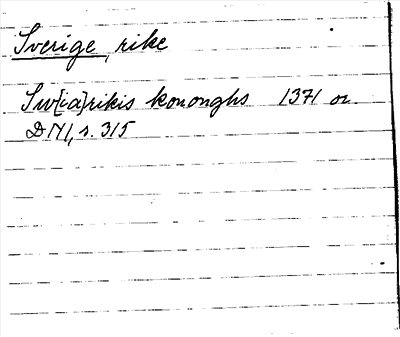 Sverige, rike
Sw[ia]rikis kononghs 1371 or.
DN1, s. 315